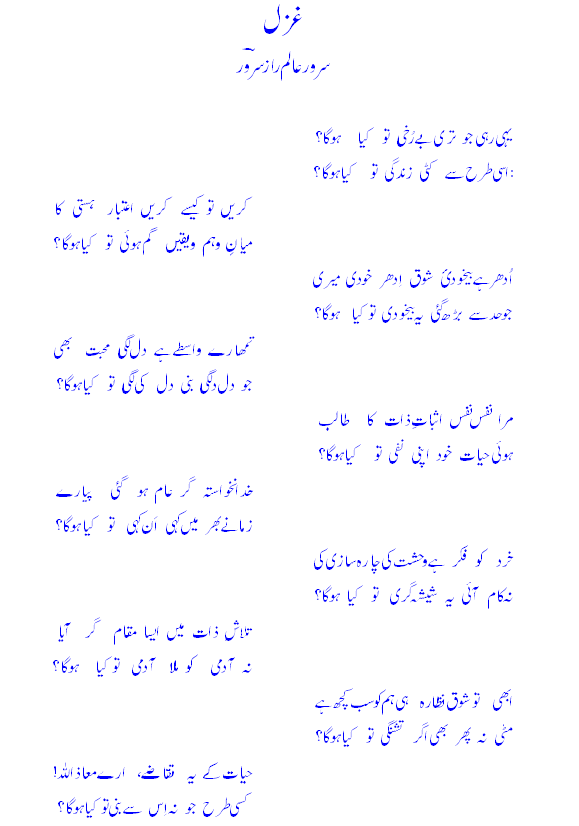 غزل
سرور عالم راز سرورؔ
یہی رہی جو تری بے رُخی تو کیا ہوگا؟
اسی طرح سے کٹی زندگی تو کیا ہوگا؟:
کریں تو کیسے کریں اعتبار ہستی کا
میانِ وہم و یقیں گم ہوئی تو کیا ہوگا؟
اُدھر ہے بیخودئ شوق اِدھر خودی میری
جو حد سے بڑھ گئی یہ بیخودی تو کیا ہوگا؟
تمھارے واسطے ہے دل لگی محبت بھی
جو دل دلگی بنی دل کی لگی تو کیا ہوگا؟
مرا نفس نفس اثباتِ ذات کا طالب
ہوئی حیات خود اپنی نفی تو کیا ہوگا؟
خدانخواستہ گر عام ہو گئی پیارے
زمانے بھر میں کہی اَن کہی تو کیا ہوگا؟
خرد کو فکر ہے وحشت کی چارہ سازی کی
نہ کام آئی یہ شیشہ گری تو کیا ہوگا؟
تلاش ذات میں ایسا مقام گر آیا
نہ آدمی کو ملا آدمی تو کیا ہوگا؟
ابھی تو شوق نظارہ ہی ہم کو سب کچھ ہے
مٹی نہ پھر بھی اگر تشنگی تو کیا ہوگا؟
حیات کے یہ تقاضے، ارے معاذ اللہ!
کسی طرح جو نہ اِس سے بنی تو کیا ہوگا؟